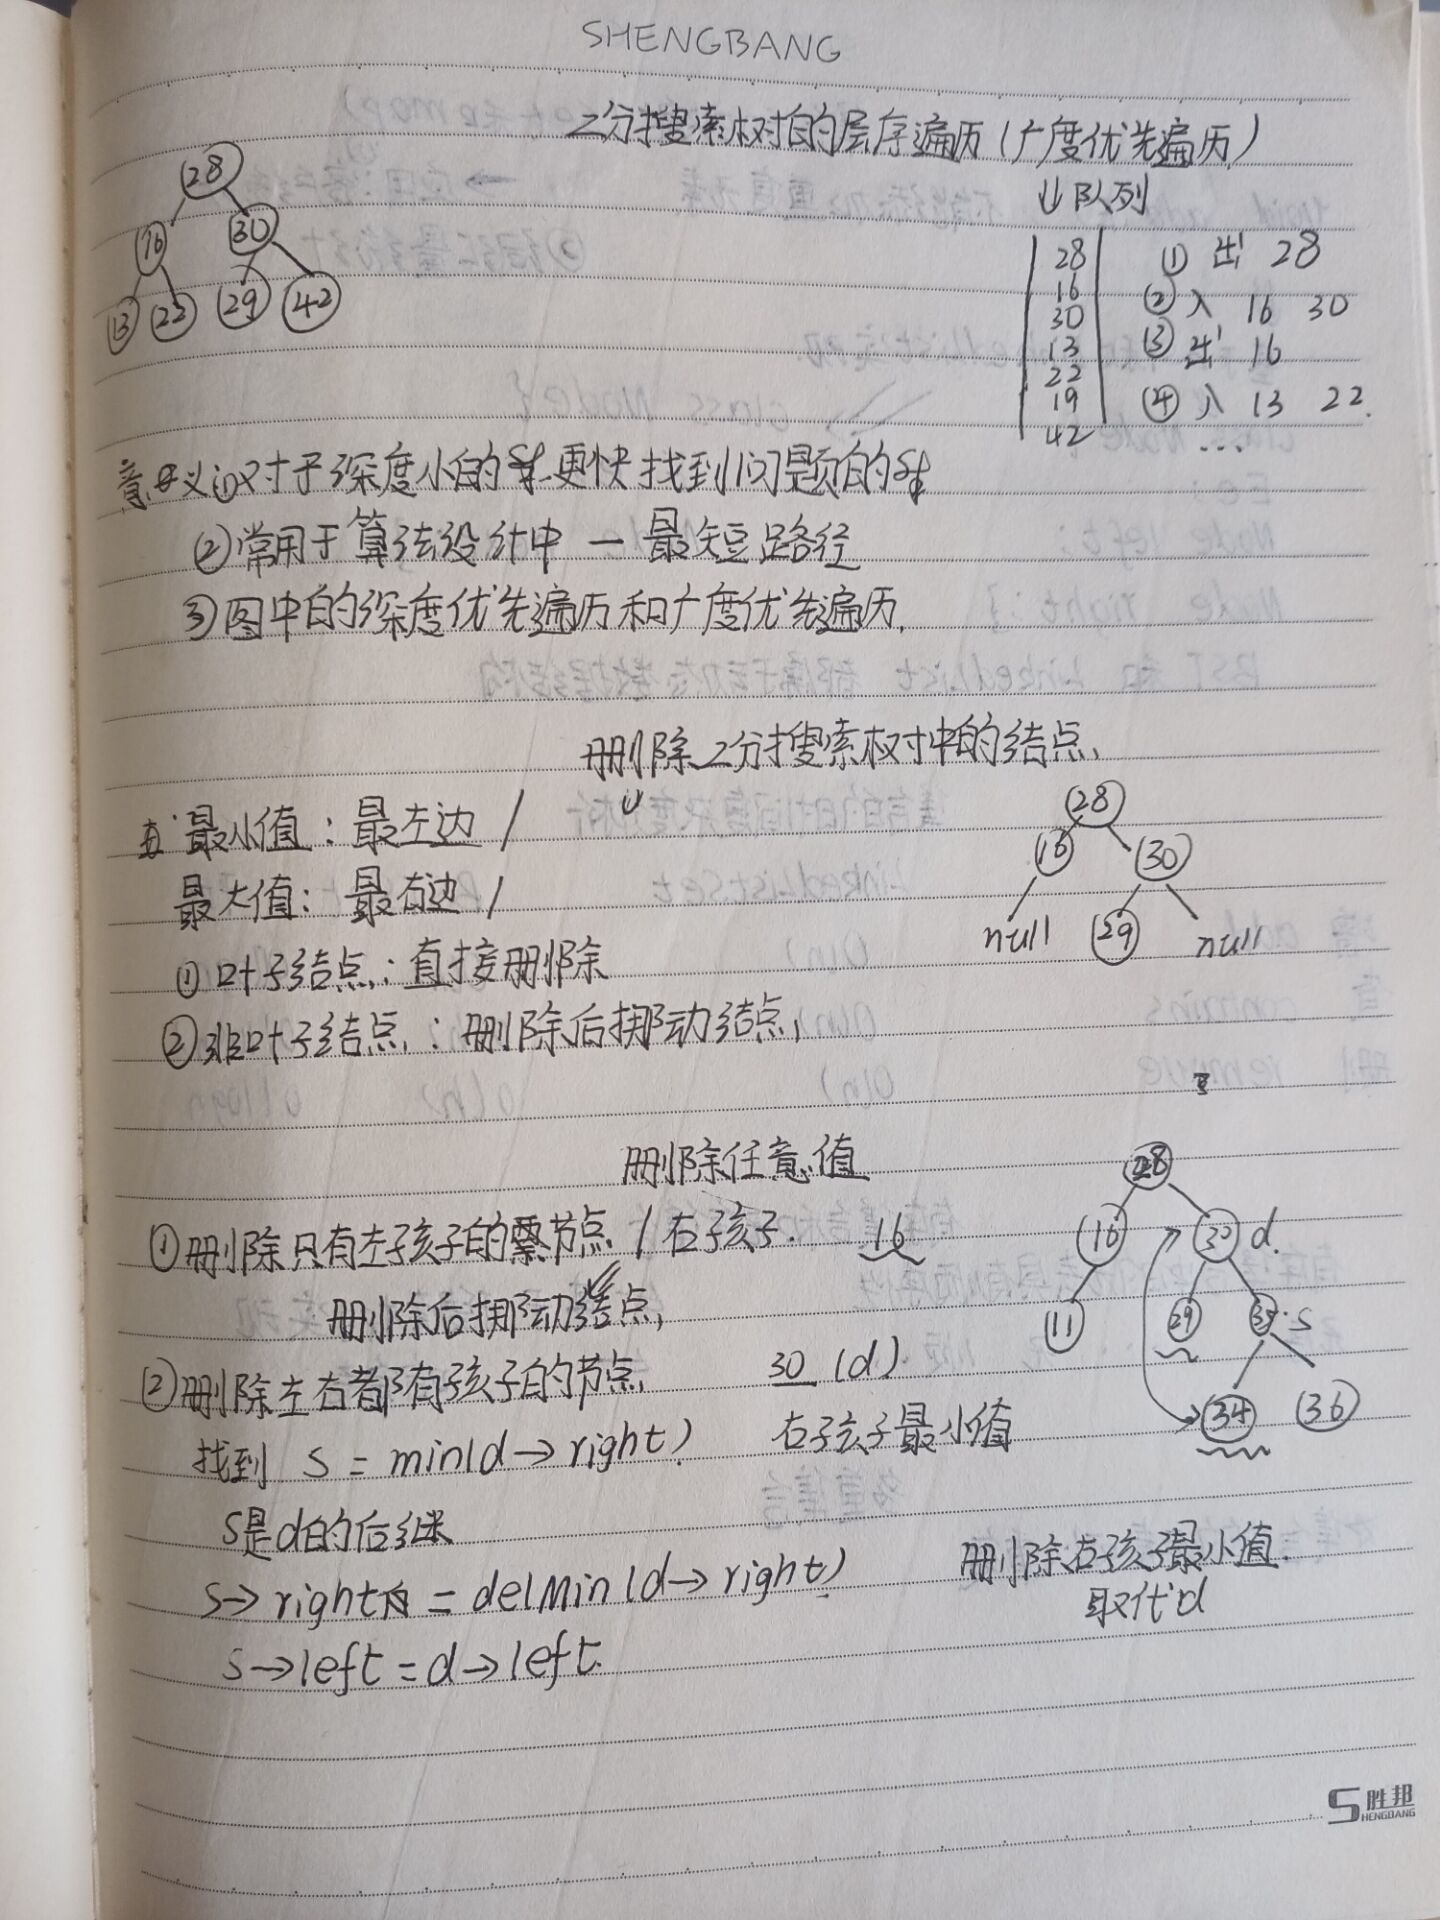 SHENGBANG
二分搜索树的层序遍历(广度优先遍历)
↓队列
28
16 30
13 22 29 42
28 ① 出 28
16 ② 入 16 30
30 ③ 出 16
13
22
19 ④ 入 13 22.
42 ...
意义①对于深度小的 更快找到问题的
②常用于算法设计中 — 最短路径
③图中的深度优先遍历和广度优先遍历.
删除二分搜索树中的结点.
最小值:最左边 /
最大值:最右边 /
28
16 30
null 29 null
①叶子结点:直接删除
②非叶子结点:删除后挪动结点.
删除任意值
①删除只有左孩子的节点 / 右孩子. 16
删除后挪动结点.
②删除左右都有孩子的节点. 30 (d).
找到 s = min(d→right) 右子孩子最小值
28
16 30 d.
11 29 s
34 36
s是d的后继
s→right = delMin(d→right) 删除右孩子最小值.
取代d
s→left = d→left.
胜邦
SHENGBANG